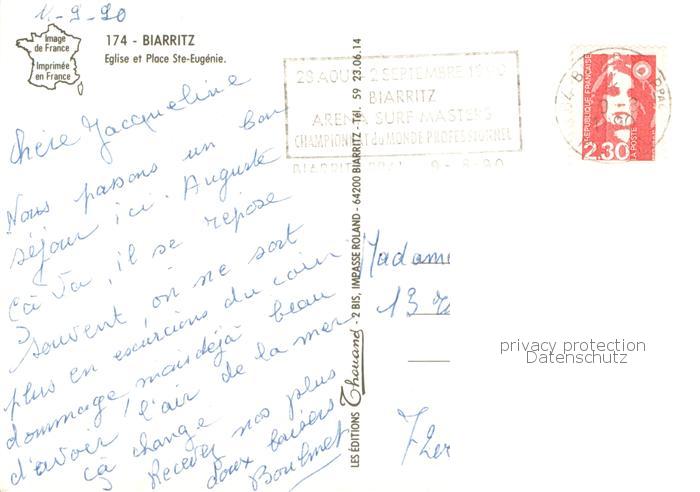 11-9-90
Image
de France
Imprimée
en France
174 - BIARRITZ
Eglise et Place Ste-Eugénie.
Chère Jacqueline
Nous passons un bon
séjour ici. Auguste
çà va, il se repose
souvent, on ne sort
plus en excursions du coin
dommage, mais déjà beau
d'avoir l'air de la mer
çà change
Recevez nos plus
doux baisers
LES ÉDITIONS Thouand - 2 BIS, IMPASSE ROLAND - 64200 BIARRITZ - Tél. 59 23.06.14
28 AOUT-2 SEPTEMBRE 1990
BIARRITZ
ARENA SURF MASTERS
CHAMPIONNAT du MONDE PROFESSIONNEL
REPUBLIQUE FRANÇAISE
2,30
LA POSTE
Madame
13
privacy protection
Datenschutz